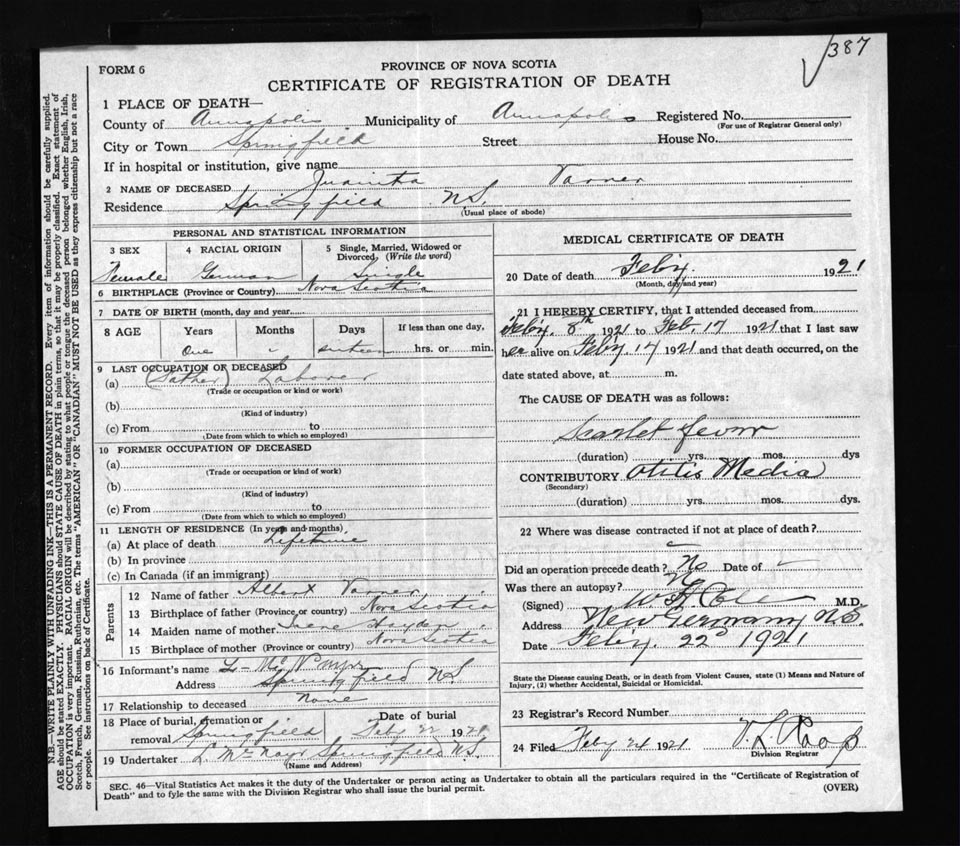 387
FORM 6
PROVINCE OF NOVA SCOTIA
CERTIFICATE OF REGISTRATION OF DEATH
1 PLACE OF DEATH—
County of Annapolis Municipality of Annapolis Registered No.
(For use of Registrar General only)
City or Town Springfield Street House No.
If in hospital or institution, give name
2 NAME OF DECEASED Juanita Varner
Residence Springfield N.S.
(Usual place of abode)
PERSONAL AND STATISTICAL INFORMATION
3 SEX 4 RACIAL ORIGIN 5 Single, Married, Widowed or Divorced, (Write the word)
Female German Single
6 BIRTHPLACE (Province or Country) Nova Scotia
7 DATE OF BIRTH (month, day and year)
8 AGE Years Months Days If less than one day,
One - sixteen hrs. or min.
9 LAST OCCUPATION OF DECEASED
(a) (Father) Laborer
(Trade or occupation or kind or work)
(b)
(Kind of industry)
(c) From to
(Date from which to which so employed)
10 FORMER OCCUPATION OF DECEASED
(a)
(Trade or occupation or kind of work)
(b)
(Kind of industry)
(c) From to
(Date from which to which so employed)
11 LENGTH OF RESIDENCE (In years and months)
(a) At place of death Lifetime
(b) In province
(c) In Canada (if an immigrant)
Parents
12 Name of father Albert Varner
13 Birthplace of father (Province or country) Nova Scotia
14 Maiden name of mother Irene Hayden
15 Birthplace of mother (Province or country) Nova Scotia
16 Informant's name L
Address Springfield N.S.
17 Relationship to deceased None
18 Place of burial, cremation or removal Springfield Date of burial Feb 22 192
19 Undertaker L. McNayr Springfield N.S.
(Name and Address)
MEDICAL CERTIFICATE OF DEATH
20 Date of death Feb'y. 1921
(Month, day and year)
21 I HEREBY CERTIFY, that I attended deceased from
Feby. 8th 1921 to Feb. 17 1921 that I last saw
her alive on Feby. 17 1921 and that death occurred, on the
date stated above, at m.
The CAUSE OF DEATH was as follows:
Scarlet fever
(duration) yrs. mos. dys
CONTRIBUTORY Otitis Media
(Secondary)
(duration) yrs. mos. dys.
22 Where was disease contracted if not at place of death?
Did an operation precede death? No Date of
Was there an autopsy? No
(Signed) M.D.
Address New Germany N.S.
Date Feb'y. 22d 1921
State the Disease causing Death, or in death from Violent Causes, state (1) Means and Nature of
Injury, (2) whether Accidental, Suicidal or Homicidal.
23 Registrar's Record Number
24 Filed Feby 24 1921
Division Registrar
SEC. 46—Vital Statistics Act makes it the duty of the Undertaker or person acting as Undertaker to obtain all the particulars required in the "Certificate of Registration of
Death" and to fyle the same with the Division Registrar who shall issue the burial permit. (OVER)
N.B.—WRITE PLAINLY WITH UNFADING INK—THIS IS A PERMANENT RECORD. Every item of information should be carefully supplied.
AGE should be stated EXACTLY. PHYSICIANS should STATE CAUSE OF DEATH in plain terms, so that it may be properly classified. Exact statement of
OCCUPATION is very important. RACIAL ORIGIN will be described by stating to what people or tongue the deceased person belonged whether English, Irish,
Scotch, French, German, Russian, Ruthenian, etc. The terms "AMERICAN" OR "CANADIAN" MUST NOT BE USED as they express citizenship but not a race
or people. See instructions on back of Certificate.